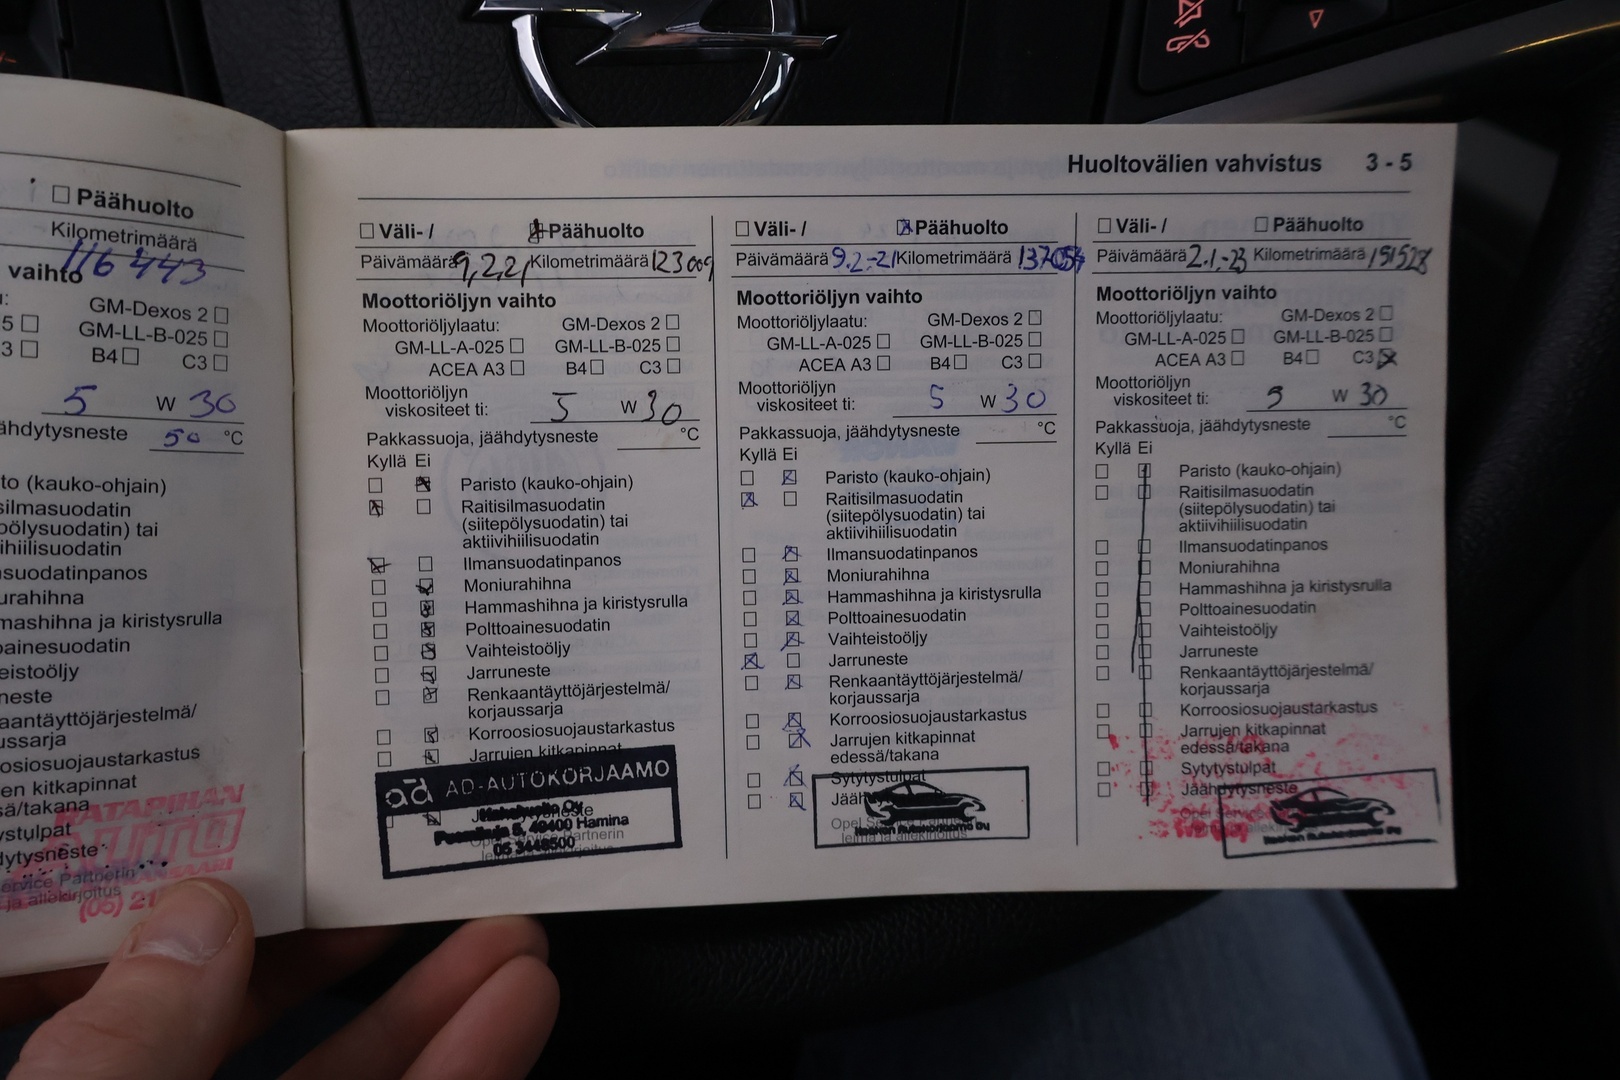 Päähuolto
Kilometrimäärä
116 443
vaihto
GM-Dexos 2
5 GM-LL-B-025
3 B4 C3
5 W 30
50 °C
to (kauko-ohjain)
silmasuodatin
pölysuodatin) tai
ihiilisuodatin
suodatinpanos
urahihna
mashihna ja kiristysrulla
oainesuodatin
eistoöljy
neste
aantäyttöjärjestelmä/
ussarja
osiosuojaustarkastus
en kitkapinnat
sä/takana
ystulpat
dytysneste
ervice Partnerin
ja allekirjoitus
KATARIHAN
AUTO
(05) 21
Huoltovälien vahvistus 3 - 5
Väli- / Päähuolto
Päivämäärä Kilometrimäärä 123009
Moottoriöljyn vaihto
Moottoriöljylaatu: GM-Dexos 2
GM-LL-A-025 GM-LL-B-025
ACEA A3 B4 C3
Moottoriöljyn
viskositeet ti: 5 W 30
Pakkassuoja, jäähdytysneste °C
Kyllä Ei
Paristo (kauko-ohjain)
Raitisilmasuodatin
(siitepölysuodatin) tai
aktiivihiilisuodatin
Ilmansuodatinpanos
Moniurahihna
Hammashihna ja kiristysrulla
Polttoainesuodatin
Vaihteistoöljy
Jarruneste
Renkaantäyttöjärjestelmä/
korjaussarja
Korroosiosuojaustarkastus
Jarrujen kitkapinnat
ad AD-AUTOKORJAAMO
49400 Hamina
05 3448500
Väli- / Päähuolto
Päivämäärä 9.2.-21 Kilometrimäärä 137054
Moottoriöljyn vaihto
Moottoriöljylaatu: GM-Dexos 2
GM-LL-A-025 GM-LL-B-025
ACEA A3 B4 C3
Moottoriöljyn
viskositeet ti: 5 W 30
Pakkassuoja, jäähdytysneste °C
Kyllä Ei
Paristo (kauko-ohjain)
Raitisilmasuodatin
(siitepölysuodatin) tai
aktiivihiilisuodatin
Ilmansuodatinpanos
Moniurahihna
Hammashihna ja kiristysrulla
Polttoainesuodatin
Vaihteistoöljy
Jarruneste
Renkaantäyttöjärjestelmä/
korjaussarja
Korroosiosuojaustarkastus
Jarrujen kitkapinnat
edessä/takana
Sytytystulpat
Autokorjaamo Oy
Väli- / Päähuolto
Päivämäärä 2.1.-23 Kilometrimäärä 151528
Moottoriöljyn vaihto
Moottoriöljylaatu: GM-Dexos 2
GM-LL-A-025 GM-LL-B-025
ACEA A3 B4 C3
Moottoriöljyn
viskositeet ti: 5 W 30
Pakkassuoja, jäähdytysneste °C
Kyllä Ei
Paristo (kauko-ohjain)
Raitisilmasuodatin
(siitepölysuodatin) tai
aktiivihiilisuodatin
Ilmansuodatinpanos
Moniurahihna
Hammashihna ja kiristysrulla
Polttoainesuodatin
Vaihteistoöljy
Jarruneste
Renkaantäyttöjärjestelmä/
korjaussarja
Korroosiosuojaustarkastus
Jarrujen kitkapinnat
edessä/takana
Sytytystulpat
Jäähdytysneste
Autokorjaamo Oy